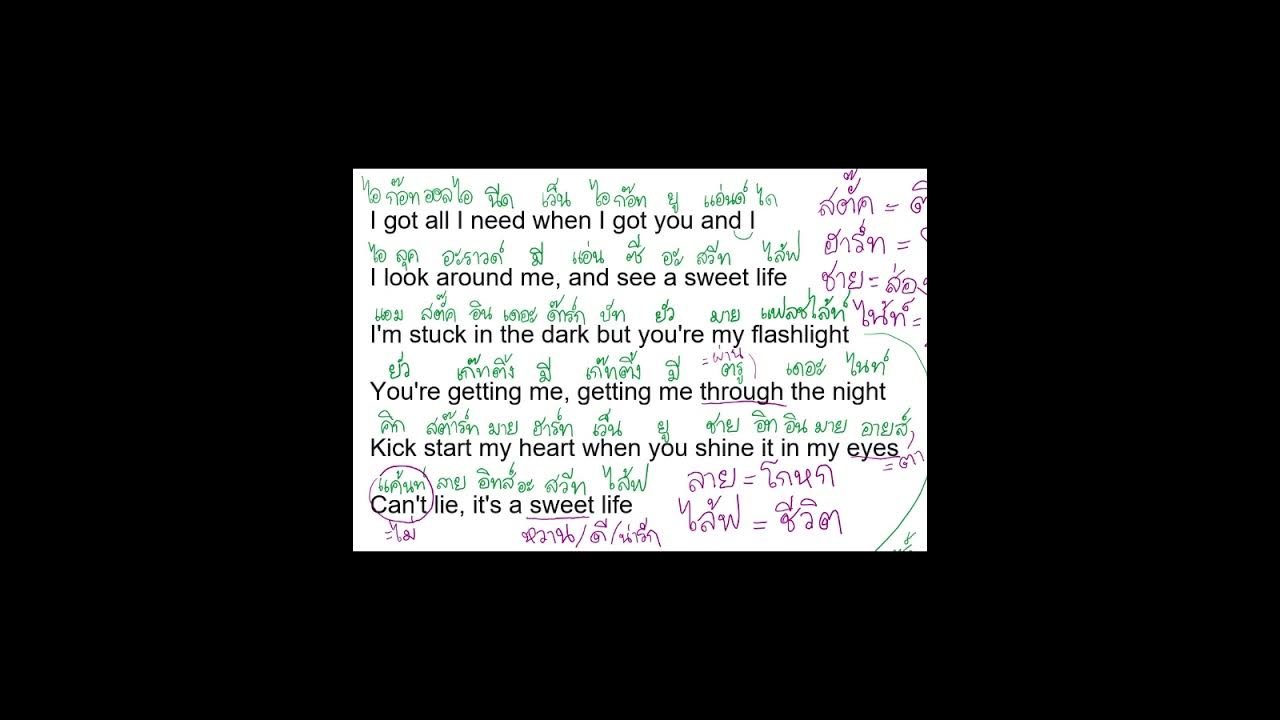 ไอ ก๊อท ออล ไอ นีด เว็น ไอ ก๊อท ยู แอ่นด์ ไอ
I got all I need when I got you and I
สตั๊ค =
ไอ ลุค อะราวด์ มี แอ่น ซี อะ สวีท ไล้ฟ
I look around me, and see a sweet life
ฮาร์ท =
ชาย = ส่อง
แอม สตั๊ค อิน เดอะ ด๊าร์ก บัท ยัว มาย แฟลชไล้ท์
I'm stuck in the dark but you're my flashlight
ไน้ท์ =
= ผ่าน
ยัว เก๊ทติ้ง มี เก๊ทติ้ง มี ตรู เดอะ ไนท์
You're getting me, getting me through the night
คิก สต๊าร์ท มาย ฮาร์ท เว็น ยู ชาย อิท อิน มาย อายส์
Kick start my heart when you shine it in my eyes
= ตา
แค้นท์ ลาย อิทส์ อะ สวีท ไล้ฟ
Can't lie, it's a sweet life
= ไม่
หวาน/ดี/น่ารัก
ลาย = โกหก
ไล้ฟ = ชีวิต